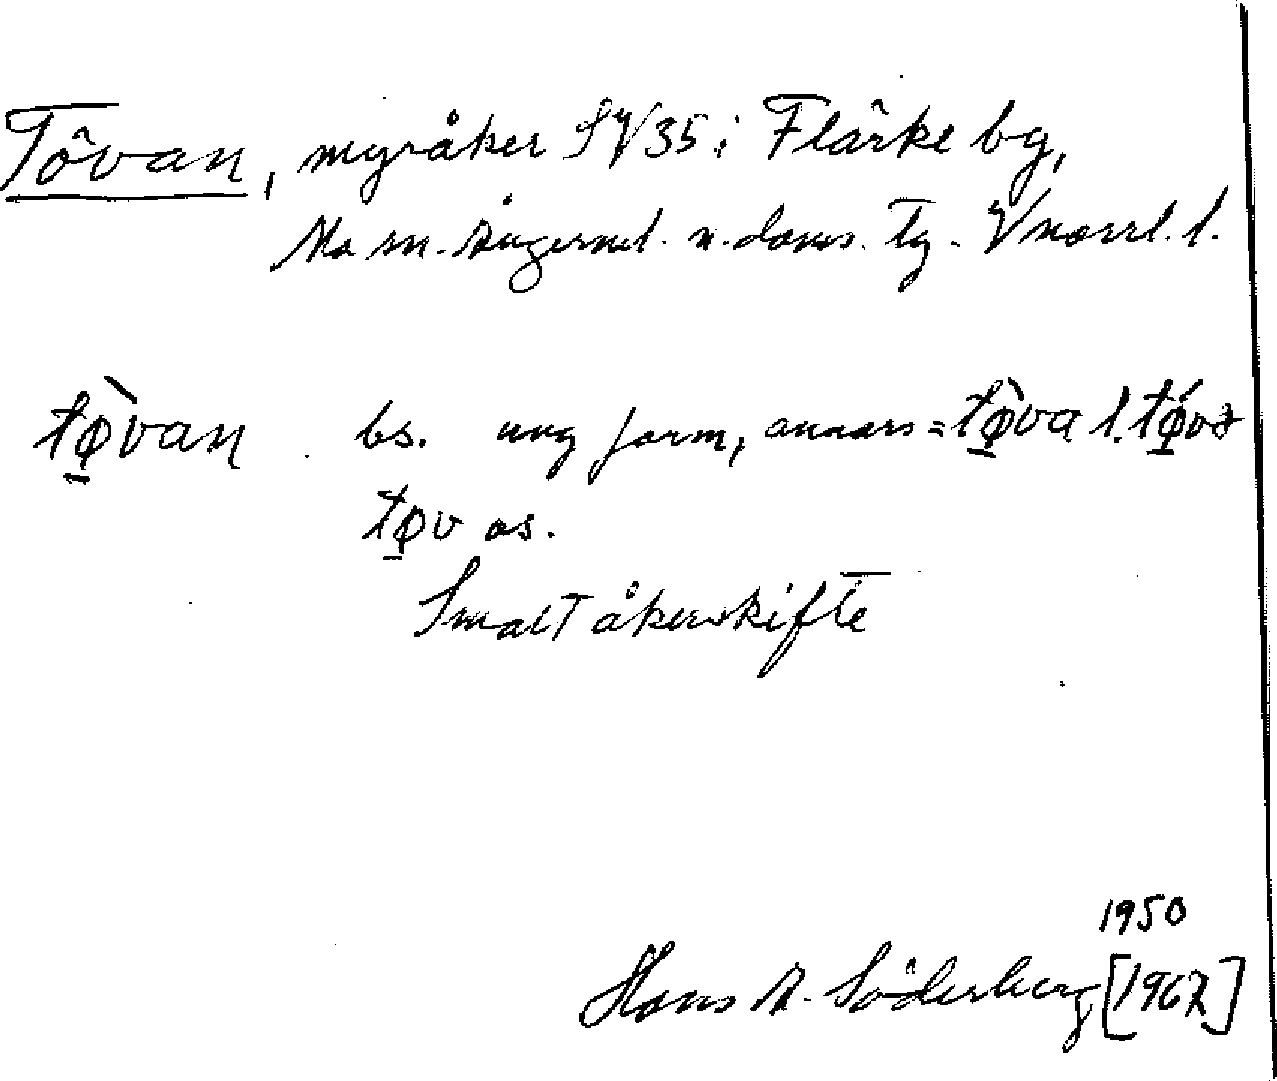 Tövan, myråker SV35 i Flärke by,
Mo sn. Ångerml. n. doms. Tg. Vnorrl. l.
tø̱̀van bs. ung form, annars = tø̱̀va l. tǿ̱və
tø̱v os.
Smalt åkerskifte
1950
Hans A. Söderberg [1967]